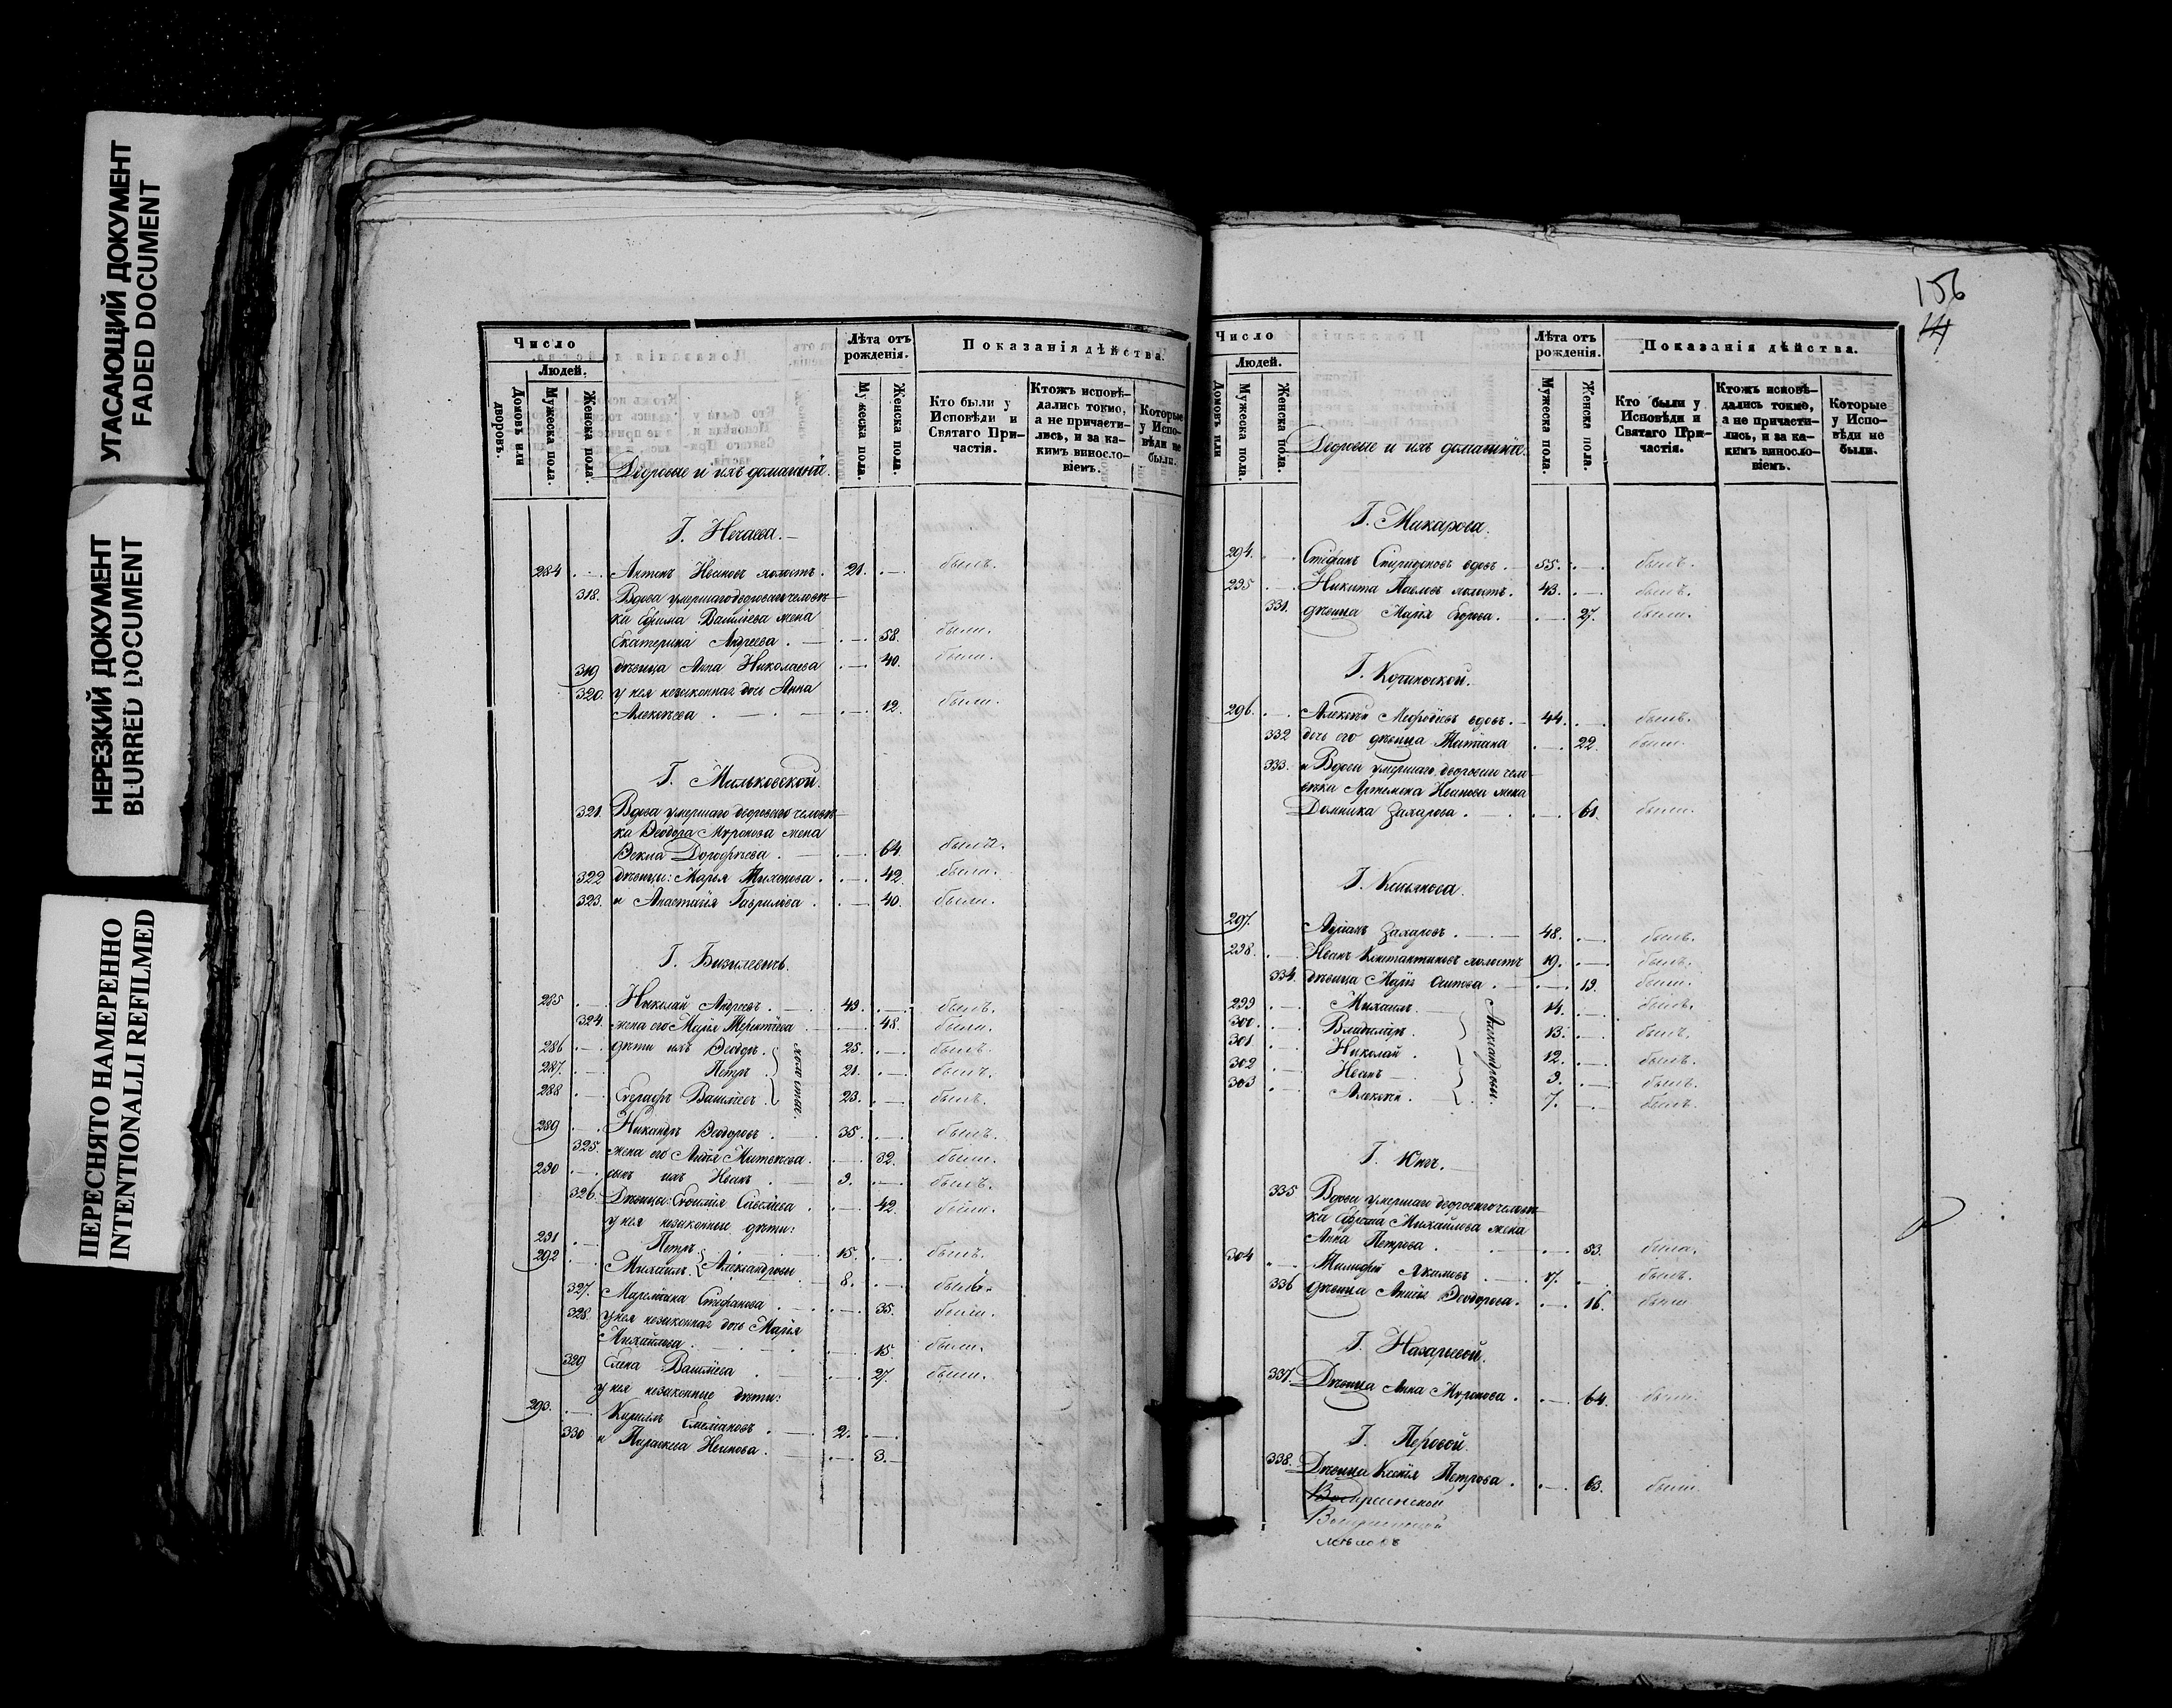 УГАСАЮЩИЙ ДОКУМЕНТ
FADED DOCUMENT
НЕРЕЗКИЙ ДОКУМЕНТ
BLURRED DOCUMENT
ПЕРЕСНЯТО НАМЕРЕННО
INTENTIONALLI REFILMED
Число
Людей.
Домовъ или дворовъ.
Мужеска пола.
Женска пола.
Дворовые и ихъ домашніе.
Лѣта отъ рожденія.
Мужеска пола
Женска пола.
Показанія дѣйства.
Кто были у Исповѣди и Святаго Причастія.
Ктожъ исповѣдались токмо, а не причастились, и за какимъ винословіемъ.
Которые у Исповѣди не были.
Г. Нечаева.
284 Антонъ Ивановъ холостъ. 21. былъ.
318. Вдова умершаго двороваго человѣ-
ка Ефима Василіева жена
Екатерина Андреева. 58. была.
319 дѣвица Анна Николаева 40. была.
320. у нея незаконная дочь Анна
Алексѣева 12. была.
Г. Мильковской.
321. Вдова умершаго двороваго человѣ-
ка Ѳеодора Миронова жена
Ѳекла Дорофѣева. 64. была.
322 дѣвицы: Марья Тихонова. 42. была.
323. и Анастасія Гаврилова. 40. была.
285 Николай Андреевъ. 49. былъ.
324. жена его Марія Терентіева 48. была.
286 дѣти ихъ Ѳеодоръ. 25. былъ.
287. Петръ 21. былъ.
холостые.
288 Евграфъ Василіевъ 23. былъ.
289 Никандръ Ѳеодоровъ 35. былъ.
325. жена его Матвѣева. 32. была.
290 сынъ ихъ Иванъ 9. былъ.
326. Дѣвицы: Евфимія Савеліева 42. была.
у нея незаконные дѣти:
291 Петръ 15. былъ.
292 Михаилъ. Александровы 8. былъ.
327. Стефанова 35. была.
328. у нея незаконная дочь Марія
Михайлова 15. была.
329 Елена Василіева 27. была.
у нея незаконные дѣти:
293. Кириллъ Емеліановъ 2.
330 и Параскева Иванова. 3.
156
14
Число
Людей.
Домовъ или
Мужеска пола.
Женска пола.
Дворовые и ихъ домашніе.
Лѣта отъ рожденія.
Мужеска пола.
Женска пола.
Показанія дѣйства.
Кто были у Исповѣди и Святаго Причастія.
Ктожъ исповѣдались токмо, а не причастились, и за какимъ винословіемъ.
Которые у Исповѣди не были.
Г. Макарова.
294. Стефанъ Спиридоновъ вдовъ. 55. былъ.
295 Никита Павловъ холостъ. 43. былъ.
331. дѣвица Марія Егорова. 27. была.
296. Алексѣй Меѳодіевъ вдовъ. 44. былъ.
332 дочь его дѣвица Татіана 22. была.
333. и Вдова умершаго двороваго чело-
вѣка Артемона Иванова жена
Домника Захарова. 61. была.
297. Захаровъ. 48. былъ.
298. Иванъ Константиновъ холостъ 19. былъ.
334. дѣвица Марія Осипова. 19. была.
299 Михаилъ. 14. былъ.
300. Владиміръ 13. былъ.
301 Николай. 12. былъ.
302 Иванъ 9. былъ.
303 Алексѣй. 7. былъ.
Александровы.
335 Вдова умершаго двороваго человѣ-
ка Ефрема Михайлова жена
Анна Петрова. 53. была.
304 Акимовъ 17. былъ.
336 дѣвица Ѳеодорова. 16. была
Г. Назарьевой.
337. Дѣвица Анна Миронова. 64. была.
Г. Перовой.
338. Дѣвица Ксенія Петрова. 63. была.
Воскресенской
Воскресенской